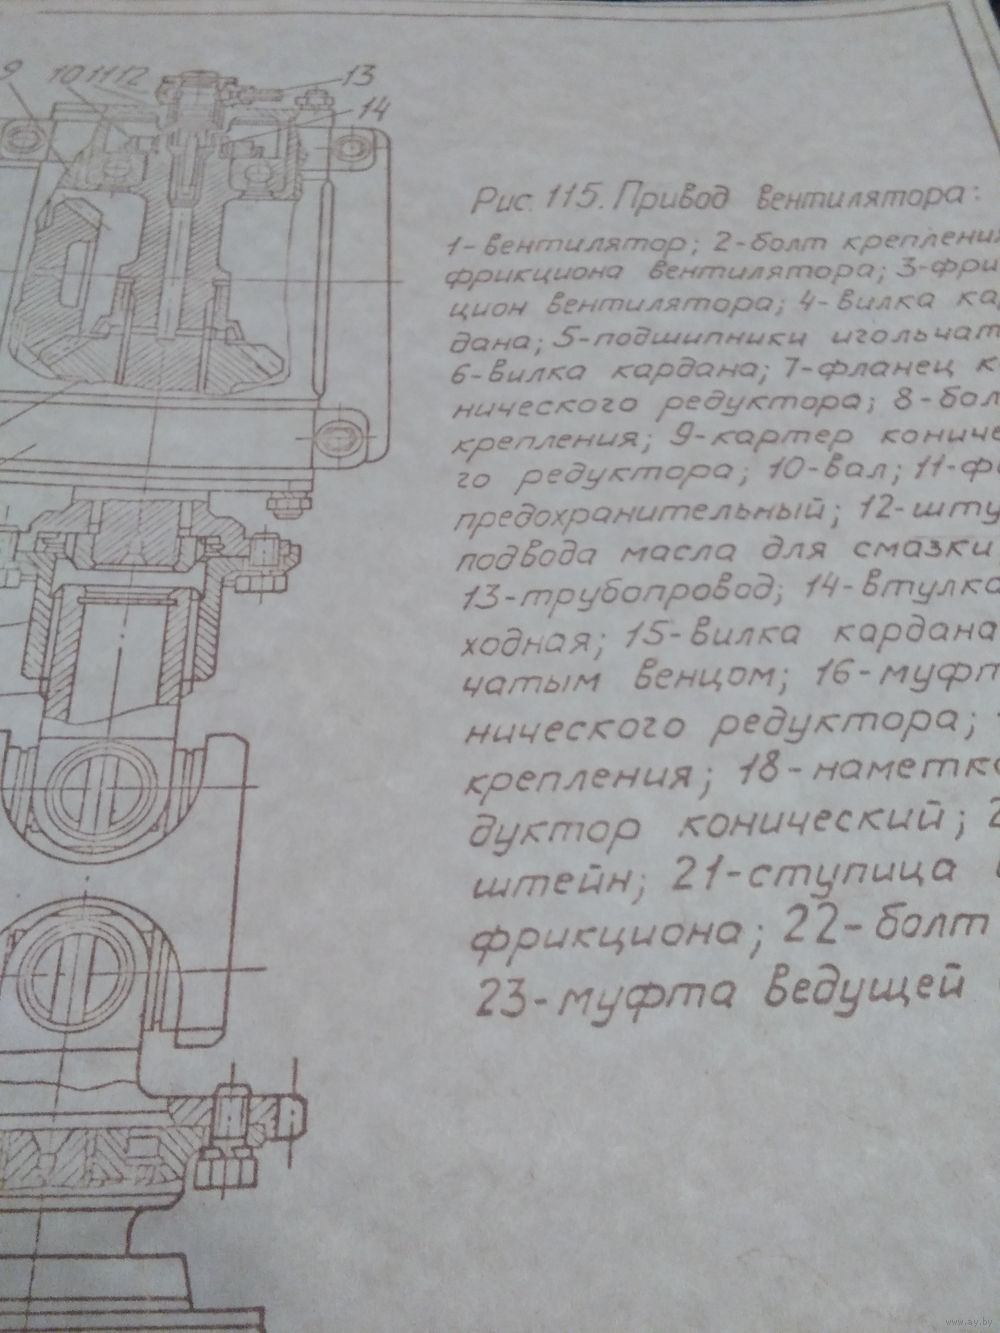 9
10 11 12
13
14
Рис. 115. Привод вентилятора:
1-вентилятор; 2-болт крепления
фрикциона вентилятора; 3-фри
цион вентилятора; 4-вилка ка
дана; 5-подшипники игольчат
6-вилка кардана; 7-фланец к
нического редуктора; 8-бол
крепления; 9-картер кониче
го редуктора; 10-вал; 11-ф
предохранительный; 12-шту
подвода масла для смазки
13-трубопровод; 14-втулка
ходная; 15-вилка кардана
чатым венцом; 16-муфт
нического редуктора;
крепления; 18-наметк
дуктор конический; 2
штейн; 21-ступица
фрикциона; 22-болт
23-муфта ведущей
www.ay.by